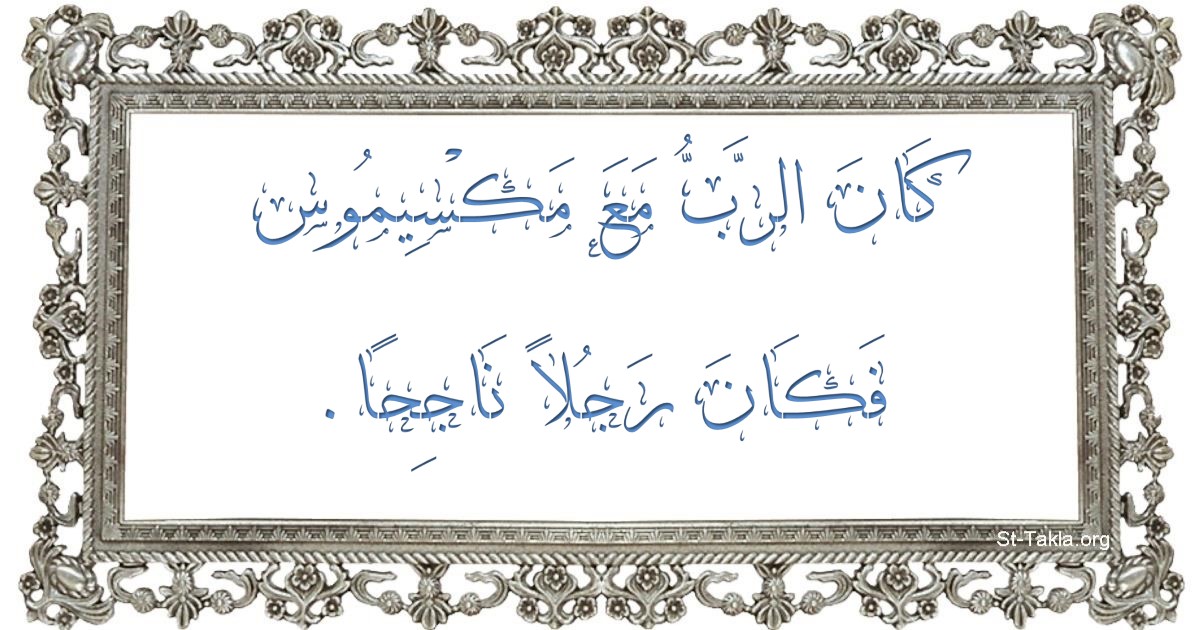 كَانَ الرَّبُّ مَعَ مَكْسِيمُوس
فَكَانَ رَجُلاً نَاجِحًا .
St-Takla.org